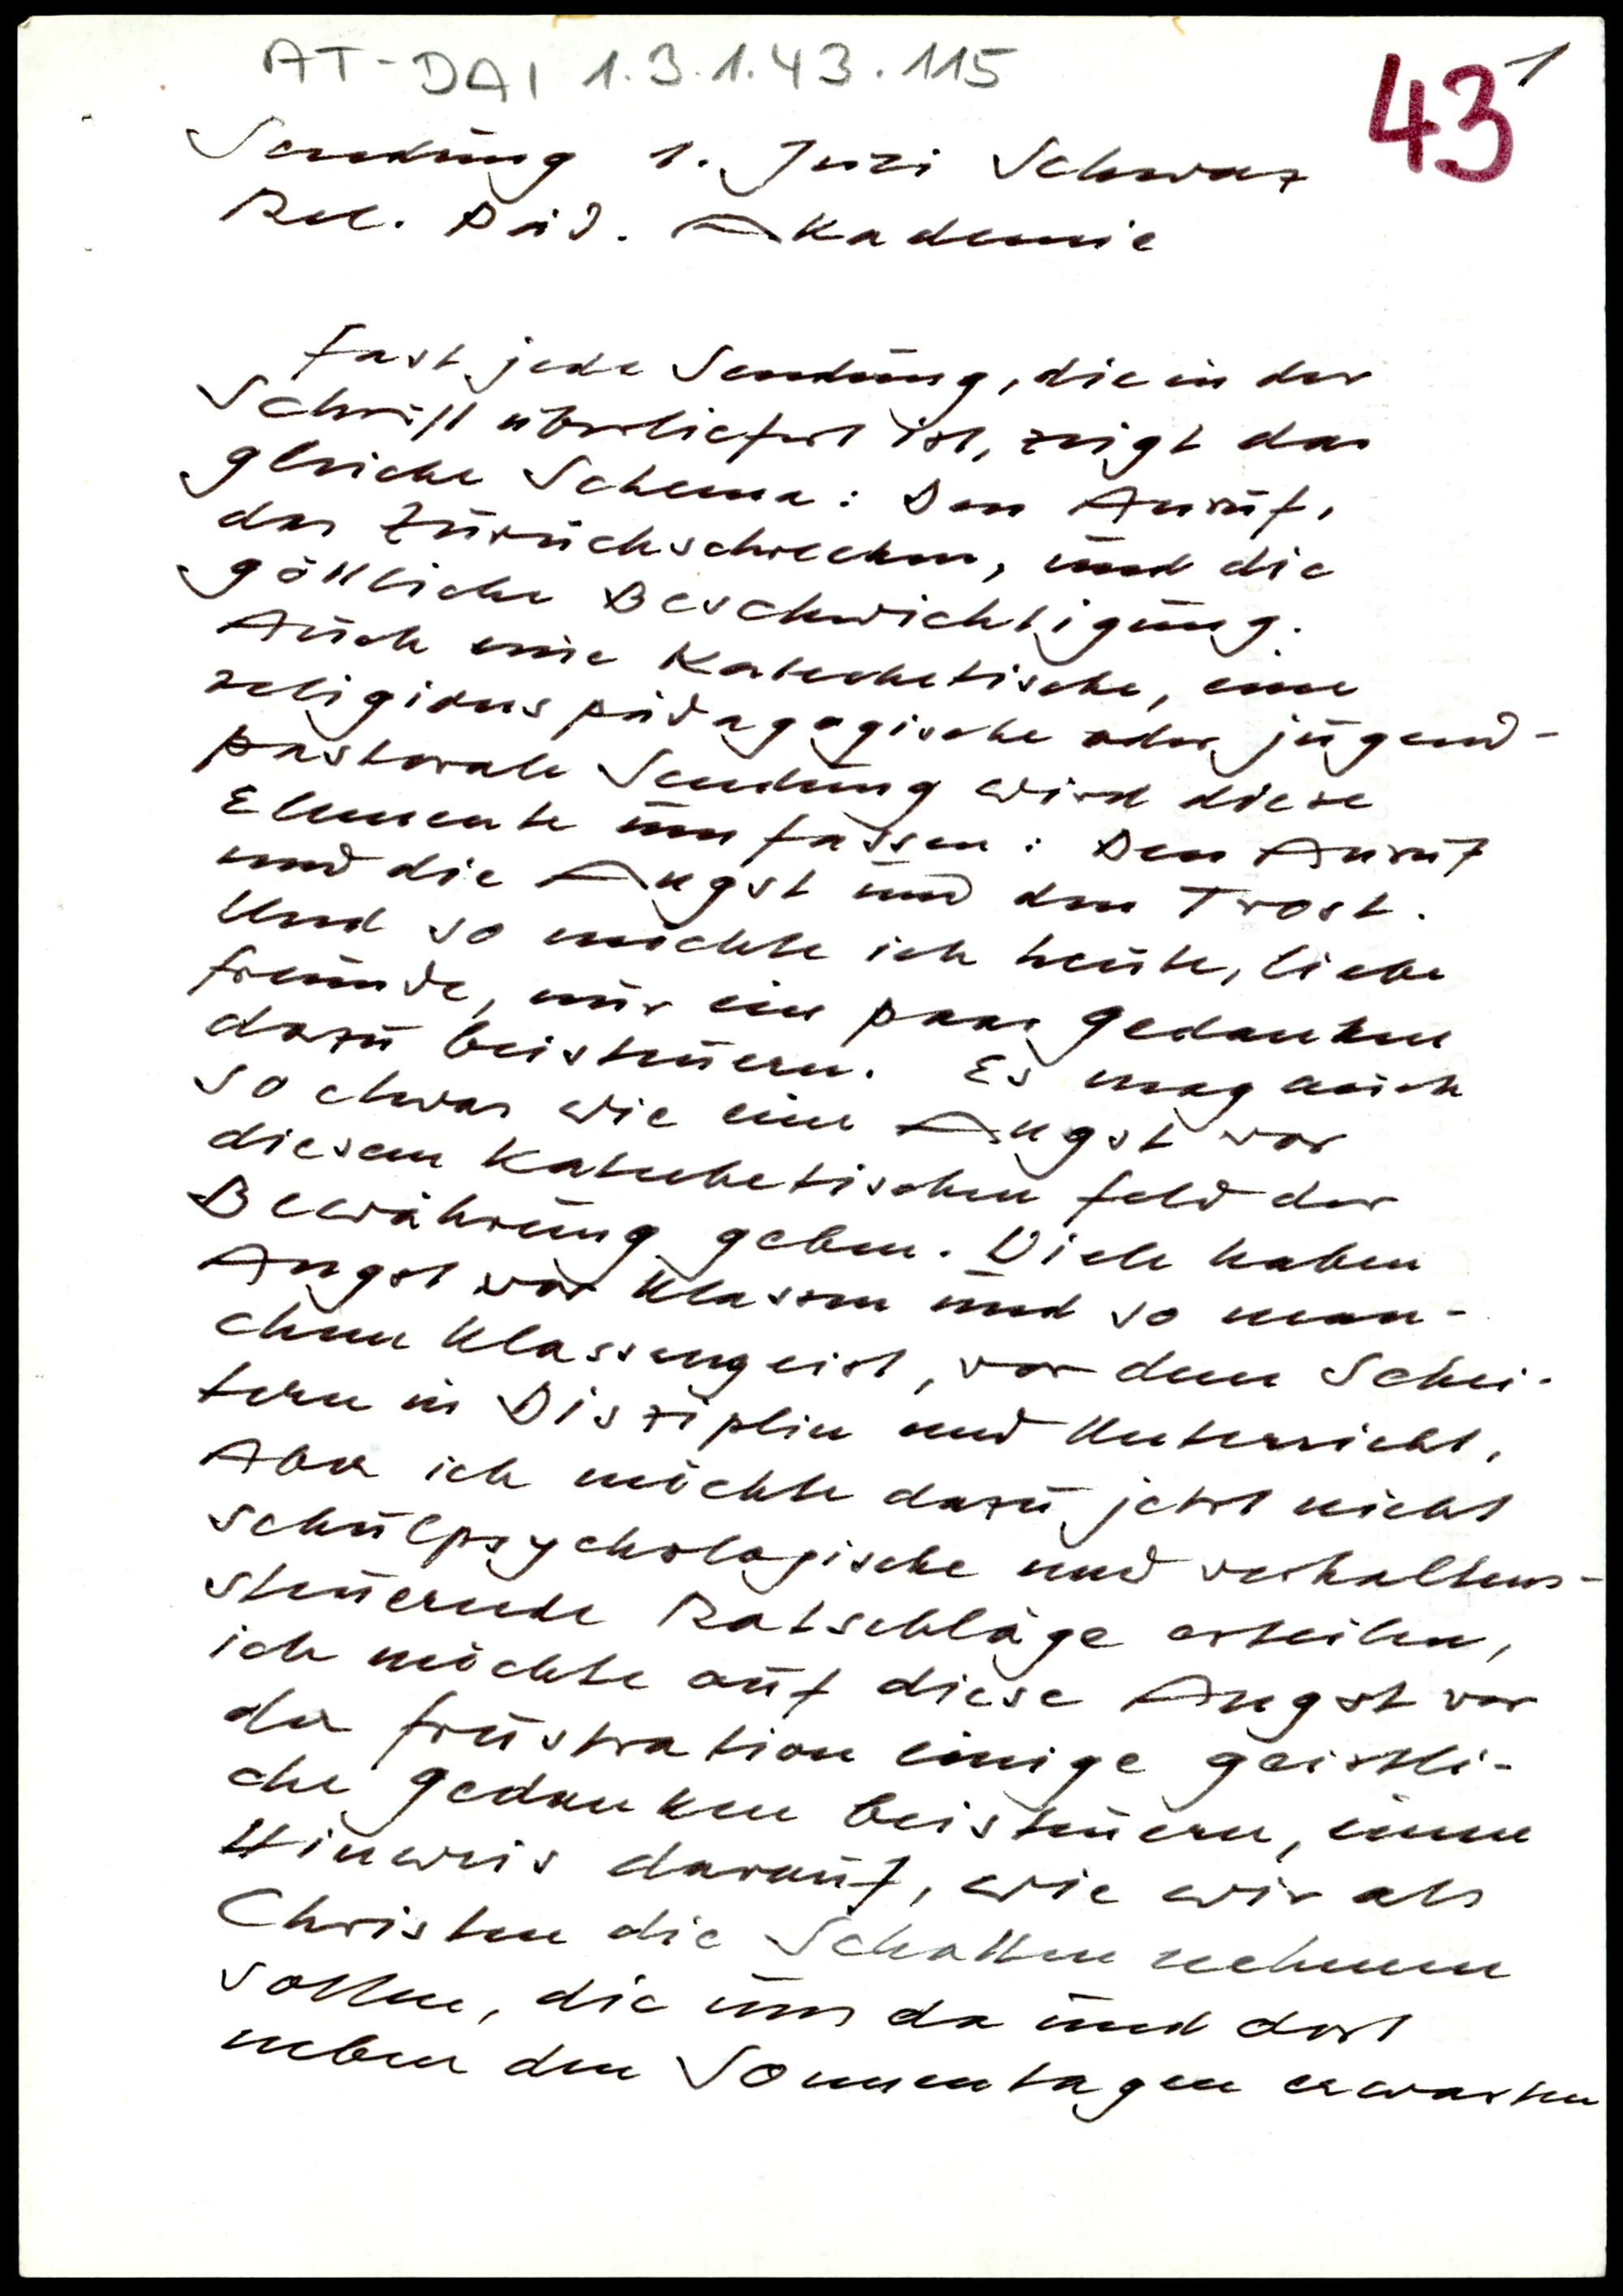 AT-DAI 1.3.1.43.115
43
1
Sendung 1. Juni Schwaz
Rel. Päd. Akademie
Fast jede Sendung, die in der
Schrift überliefert ist, zeigt das
gleiche Schema: Den Anruf,
das Zurückschrecken, und die
göttliche Beschwichtigung.
Auch eine katechetische, eine
religionspädagogische oder jugend-
pastorale Sendung wird diese
Elemente umfassen: Den Anruf
und die Angst und den Trost.
Und so möchte ich heute, liebe
Freunde, nur ein paar Gedanken
dazu beisteuern. Es mag auch
so etwas wie eine Angst vor
diesem katechetischen Feld der
Bewährung geben. Viele haben
Angst vor Klassen und so man-
chem Klassengeist, vor dem Schei-
tern in Disziplin und Unterricht.
Aber ich möchte dazu jetzt nicht
schulpsychologische und verhaltens-
steuernde Ratschläge erteilen,
ich möchte auf diese Angst vor
der Frustration einige geistli-
che Gedanken beisteuern, einen
Hinweis darauf, wie wir als
Christen die Schatten nehmen
sollen, die uns da und dort
neben den Sonnentagen erwarten